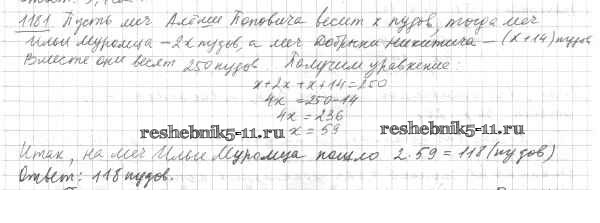 1181. Пусть меч Алёши Поповича весит x пудов, тогда меч
Ильи Муромца – 2x пудов, а меч Добрыни Никитича – (x+14) пудов
Вместе они весят 250 пудов. Получим уравнение:
x+2x+x+14=250
4x = 250-14
4x = 236
x = 59
reshebnik5-11.ru reshebnik5-11.ru
Итак, на меч Ильи Муромца пошло 2·59 = 118 (пудов)
Ответ: 118 пудов.